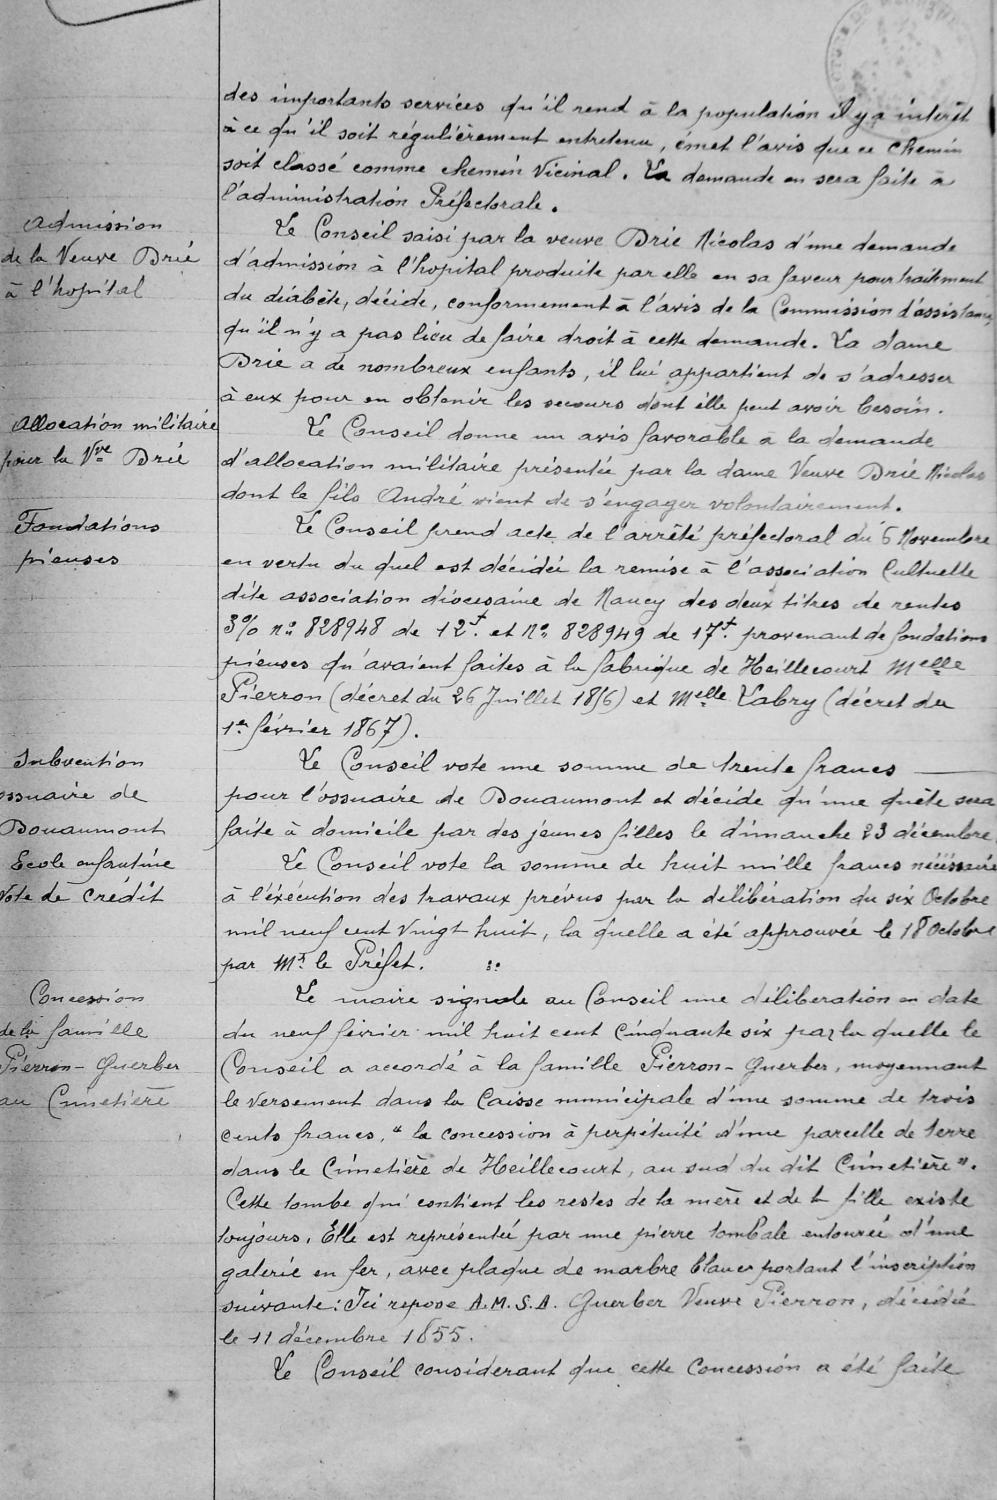 des importants services qu'il rend à la population il y a intérêt
à ce qu'il soit régulièrement entretenu, émet l'avis que ce chemin
soit classé comme chemin Vicinal. La demande en sera faite à
l'administration Préfectorale.
Admission
de la Veuve Drié
à l'hopital
Le Conseil saisi par la veuve Drié Nicolas d'une demande
d'admission à l'hopital produite par elle en sa faveur pour traitement
du diabète, décide, conformement à l'avis de la Commission d'assistance,
qu'il n'y a pas lieu de faire droit à cette demande. La dame
Drié a de nombreux enfants, il lui appartient de s'adresser
à eux pour en obtenir les secours dont elle peut avoir besoin.
Allocation militaire
pour la Vve Drié
Le Conseil donne un avis favorable à la demande
d'allocation militaire présentée par la dame Veuve Drié Nicolas
dont le fils André vient de s'engager volontairement.
Fondations
pieuses
Le Conseil prend acte de l'arrêté préfectoral du 6 Novembre
en vertu du quel est décidée la remise à l'association Cultuelle
dite association diocésaine de Nancy des deux titres de rentes
3% no 828948 de 12f. et No 828949 de 17f. provenant de fondations
pieuses qu'avaient faites à la fabrique de Heillecourt Melle
Pierron (décret du 26 Juillet 1856) et Melle Labry (décret du
1er février 1867).
Subvention
ossuaire de
Douaumont
Le Conseil vote une somme de trente francs
pour l'ossuaire de Douaumont et décide qu'une quête sera
faite à domicile par des jeunes filles le dimanche 23 décembre.
Ecole enfantine
Vote de crédit
Le Conseil vote la somme de huit mille francs nécessaire
à l'éxécution des travaux prévus par la délibération du six Octobre
mil neuf cent vingt huit, la quelle a été approuvée le 18 Octobre
par Mr le Préfet.
Concession
de la famille
Pierron-Guerber
au Cimetière
Le maire signale au Conseil une déliberation en date
du neuf février mil huit cent cinquante six par la quelle le
Conseil a accordé à la famille Pierron-Guerber, moyennant
le versement dans la Caisse municipale d'une somme de trois
cents francs, "la concession à perpétuité d'une parcelle de terre
dans le Cimetière de Heillecourt, au sud du dit Cimetière".
Cette tombe qui contient les restes de la mère et de la fille existe
toujours. Elle est représentée par une pierre tombale entourée d'une
galerie en fer, avec plaque de marbre blanc portant l'inscription
suivante: Ici repose A.M.S.A. Guerber Veuve Pierron, décédée
le 11 décembre 1855.
Le Conseil considerant que cette Concession a été faite